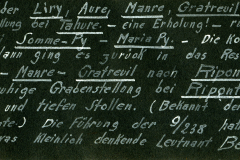 der Liry, Aure, Manre, Gratreuil
llung der Tahure. – eine Erholung! – rn
Somme-Py Maria Py. – Die Ko
dann ging es zurück in das Res
– Manre – Gratreuil nach Ripon
ruhige Grabenstellung bei Ripont
und tiefen Stollen. (Bekannt der
nte.) Die Führung der 9/238 hat
was kleinlich denkende Leutnant Be